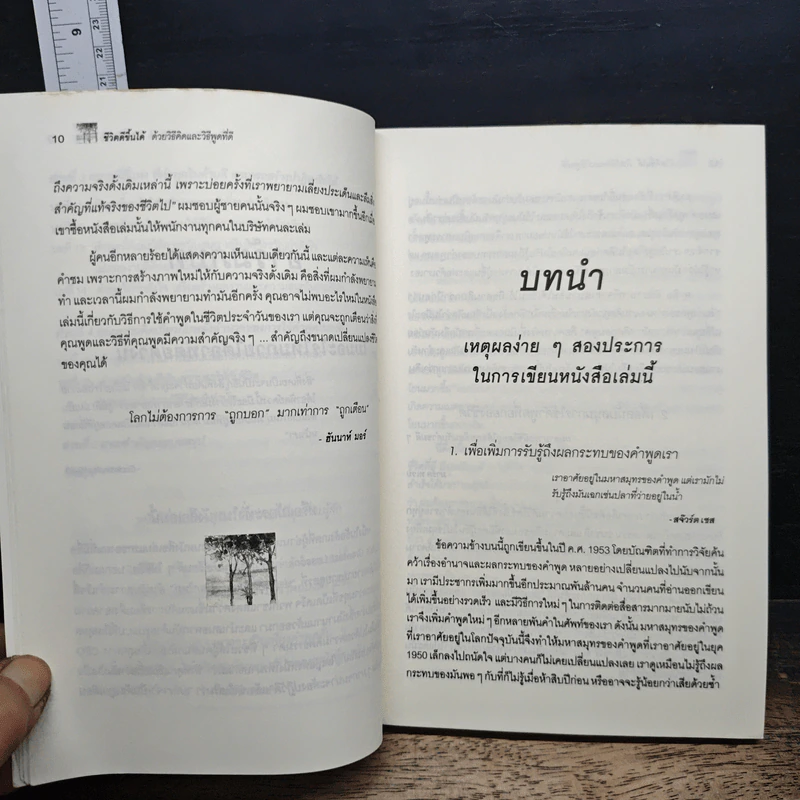 9
23
22
21
10 ชีวิตดีขึ้นได้ ด้วยวิธีคิดและวิธีพูดที่ดี
ถึงความจริงดั้งเดิมเหล่านี้ เพราะบ่อยครั้งที่เราพยายามเลี่ยงประเด็นและลืมสิ่ง
สำคัญที่แท้จริงของชีวิตไป" ผมชอบผู้ชายคนนั้นจริง ๆ ผมชอบเขามากขึ้นอีกเมื่อ
เขาซื้อหนังสือเล่มนั้นให้พนักงานทุกคนในบริษัทคนละเล่ม
ผู้คนอีกหลายร้อยได้แสดงความเห็นแบบเดียวกันนี้ และแต่ละความเห็นคือ
คำชม เพราะการสร้างภาพใหม่ให้กับความจริงดั้งเดิม คือสิ่งที่ผมกำลังพยายาม
ทำ และเวลานี้ผมกำลังพยายามทำมันอีกครั้ง คุณอาจไม่พบอะไรใหม่ในหนังสือ
เล่มนี้เกี่ยวกับวิธีการใช้คำพูดในชีวิตประจำวันของเรา แต่คุณจะถูกเตือนว่าสิ่งที่
คุณพูดและวิธีที่คุณพูดมีความสำคัญจริง ๆ ... สำคัญถึงขนาดเปลี่ยนแปลงชีวิต
ของคุณได้
โลกไม่ต้องการการ "ถูกบอก" มากเท่าการ "ถูกเตือน"
- ฮันนาห์ มอร์
บทนำ
เหตุผลง่าย ๆ สองประการ
ในการเขียนหนังสือเล่มนี้
1. เพื่อเพิ่มการรับรู้ถึงผลกระทบของคำพูดเรา
เราอาศัยอยู่ในมหาสมุทรของคำพูด แต่เรามักไม่
รับรู้ถึงมันเฉกเช่นปลาที่ว่ายอยู่ในน้ำ
- สจ๊วร์ต เชส
ข้อความข้างบนนี้ถูกเขียนขึ้นในปี ค.ศ. 1953 โดยบัณฑิตที่ทำการวิจัยค้น
คว้าเรื่องอำนาจและผลกระทบของคำพูด หลายอย่างเปลี่ยนแปลงไปนับจากนั้น
มา เรามีประชากรเพิ่มมากขึ้นอีกประมาณพันล้านคน จำนวนคนที่อ่านออกเขียน
ได้เพิ่มขึ้นอย่างรวดเร็ว และมีวิธีการใหม่ ๆ ในการติดต่อสื่อสารมากมายนับไม่ถ้วน
เราจึงเพิ่มคำพูดใหม่ ๆ อีกหลายพันคำในศัพท์ของเรา ดังนั้น มหาสมุทรของคำพูด
ที่เราอาศัยอยู่ในโลกปัจจุบันนี้จึงทำให้มหาสมุทรของคำพูดที่เราอาศัยอยู่ในยุค
1950 เล็กลงไปถนัดใจ แต่บางคนก็ไม่เคยเปลี่ยนแปลงเลย เราดูเหมือนไม่รู้ถึงผล
กระทบของมันพอ ๆ กับที่ก็ไม่รู้เมื่อห้าสิบปีก่อน หรืออาจจะรู้น้อยกว่าเสียด้วยซ้ำ